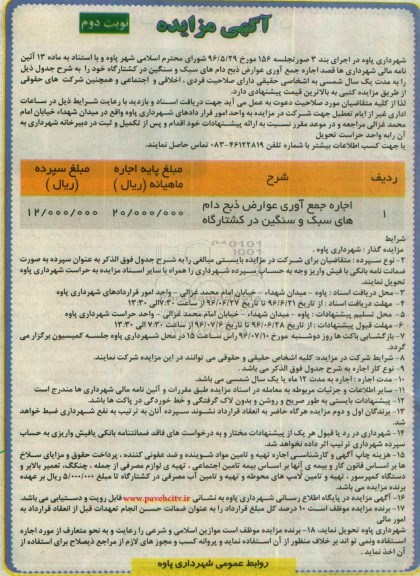 آگهی مزایده
نوبت دوم
شهرداری پاوه در اجرای بند ۳ صورتجلسه ۱۵۶ مورخ ۹۶/۵/۲۹ شورای محترم اسلامی شهر پاوه و با استناد به ماده ۱۳ آئین
نامه مالی شهرداری ها قصد اجاره جمع آوری عوارض ذبح دام های سبک و سنگین در کشتارگاه خود را به شرح جدول ذیل
را به مدت یک سال شمسی به اشخاص حقیقی دارای صلاحیت فردی ، اخلاقی و اجتماعی و همچنین شرکت های حقوقی
از طریق مزایده کتبی به بالاترین قیمت پیشنهادی دارد.
لذا از کلیه متقاضیان مورد صلاحیت دعوت به عمل می آید جهت دریافت اسناد و بازدید با رعایت شرایط ذیل در ساعات
اداری غیر از ایام تعطیل جهت شرکت در مزایده به واحد امور قرار دادهای شهرداری پاوه واقع در میدان شهدا، خیابان امام
محمد غزالی مراجعه و در موعد مقرر نسبت به ارائه پیشنهادات خود اقدام و پس از تکمیل و ثبت در دبیرخانه شهرداری به
آن را به واحد حراست تحویل
یا جهت کسب اطلاعات بیشتر با شماره تلفن ۴۶۱۲۲۸۱۹-۰۸۳ تماس حاصل نمایند.
ردیف شرح مبلغ پایه اجاره ماهیانه (ریال ) مبلغ سپرده (ریال )
۱ اجاره جمع آوری عوارض ذبح دام های سبک و سنگین در کشتارگاه ۲۰/۰۰۰/۰۰۰ ۱۲/۰۰۰/۰۰۰
شرایط
مزایده گذار : شهرداری پاوه ،
۲- نوع سپرده : متقاضیان برای شرکت در مزایده بایستی مبالغی را به شرح جدول فوق الذکر به عنوان سپرده به صورت
ضمانت نامه بانکی یا فیش واریز وجه به حساب سپرده شهرداری را همراه با سایر اسناد مزایده به حراست شهرداری پاوه
تحویل نمایند.
۳- محل دریافت اسناد : پاوه - میدان شهدا، - خیابان امام محمد غزالی - واحد امور قراردادهای شهرداری پاوه
۴- مهلت دریافت اسناد : از تاریخ ۹۶/۰۶/۲۱ تا تاریخ ۹۶/۰۶/۲۷ از ساعت ۷:۳۰ الی ۱۳:۳۰
۵- محل تسلیم پیشنهادات : پاوه - میدان شهدا، - خیابان امام محمد غزالی - واحد حراست شهرداری پاوه
۶- مهلت قبول پیشنهادات : از تاریخ ۹۶/۰۶/۲۸ تا تاریخ ۹۶/۰۷/۶ از ساعت ۷:۳۰ الی ۱۳:۳۰
۷- بازگشایی پاکت ها روز دوشنبه مورخ ۹۶/۰۷/۱۰ راس ساعت ۱۵ در محل شهرداری پاوه جلسه کمیسیون برگزار می
گردد.
۸- شرایط شرکت در مزایده: کلیه اشخاص حقیقی و حقوقی می توانند در این مزایده شرکت نمایند.
۹- نوع کار اجاره به شرح جدول فوق الذکر می باشد.
۱۰- مدت اجاره : اجاره به مدت ۱۲ ماه یا یک سال شمسی می باشد.
۱۱- سایر اطلاعات و جزئیات مربوطه به معامله در اسناد مزایده طبق مقررات و آئین نامه مالی شهرداری ها مندرج است
۱۲- پیشنهادات بایستی به طور صریح و روشن و بدون لاک گرفتگی و خط خوردگی در پاکت ها باشد.
۱۳- برندگان اول و دوم مزایده هرگاه حاضر به انعقاد قرارداد نشوند سپرده آنان به ترتیب به نفع شهرداری ضبط خواهد
شد.
۱۴- شهرداری در رد یا قبول هر یک از پیشنهادات مختار و به درخواست های فاقد ضمانتنامه بانکی یافیش واریزی به حساب
سپرده شهرداری ترتیب اثر داده نخواهد شد.
۱۵- هزینه چاپ آگهی و کارشناسی اجاره تهیه و تامین مواد شوینده و ضد عفونی کننده ، پرداخت حقوق و مزایای سلاخ
ها بر اساس قانون کار و بیمه ی آنها بر اساس بیمه تامین اجتماعی . تهیه ی لوازم مصرفی از جمله ، چنگک، تعمیر بالابر و
دستگاه کمپرسور ، تهیه و تامین لامپ های محوطه و تهیه و تامین آب مصرفی در کشتارگاه تا مبلغ ۵/۰۰۰/۰۰۰ ریال بر عهده
برنده مزایده می باشد.
۱۶- آگهی مزایده در پایگاه اطلاع رسانی شهرداری پاوه به نشانی www.pavehcity.ir قابل رویت و دستیابی می باشد.
۱۷- برنده مزایده موظف است ۱۰ درصد کل مبلغ قرارداد را به عنوان ضمانت حسن انجام تعهدات قبل از انعقاد قرارداد به
امور مالی
شهرداری پاوه تحویل نماید، ۱۸- برنده مزایده موظف است موازین اسلامی و شرعی را رعایت و به نحو متعارف از مورد اجاره
استفاده ونمی تواند بر خلاف منظور از آن استفاده نماید و پروانه کسب و مجوز های لازم از مراجع ذیصلاح برای استفاده از
آن اخذ نماید .
روابط عمومی شهرداری پاوه